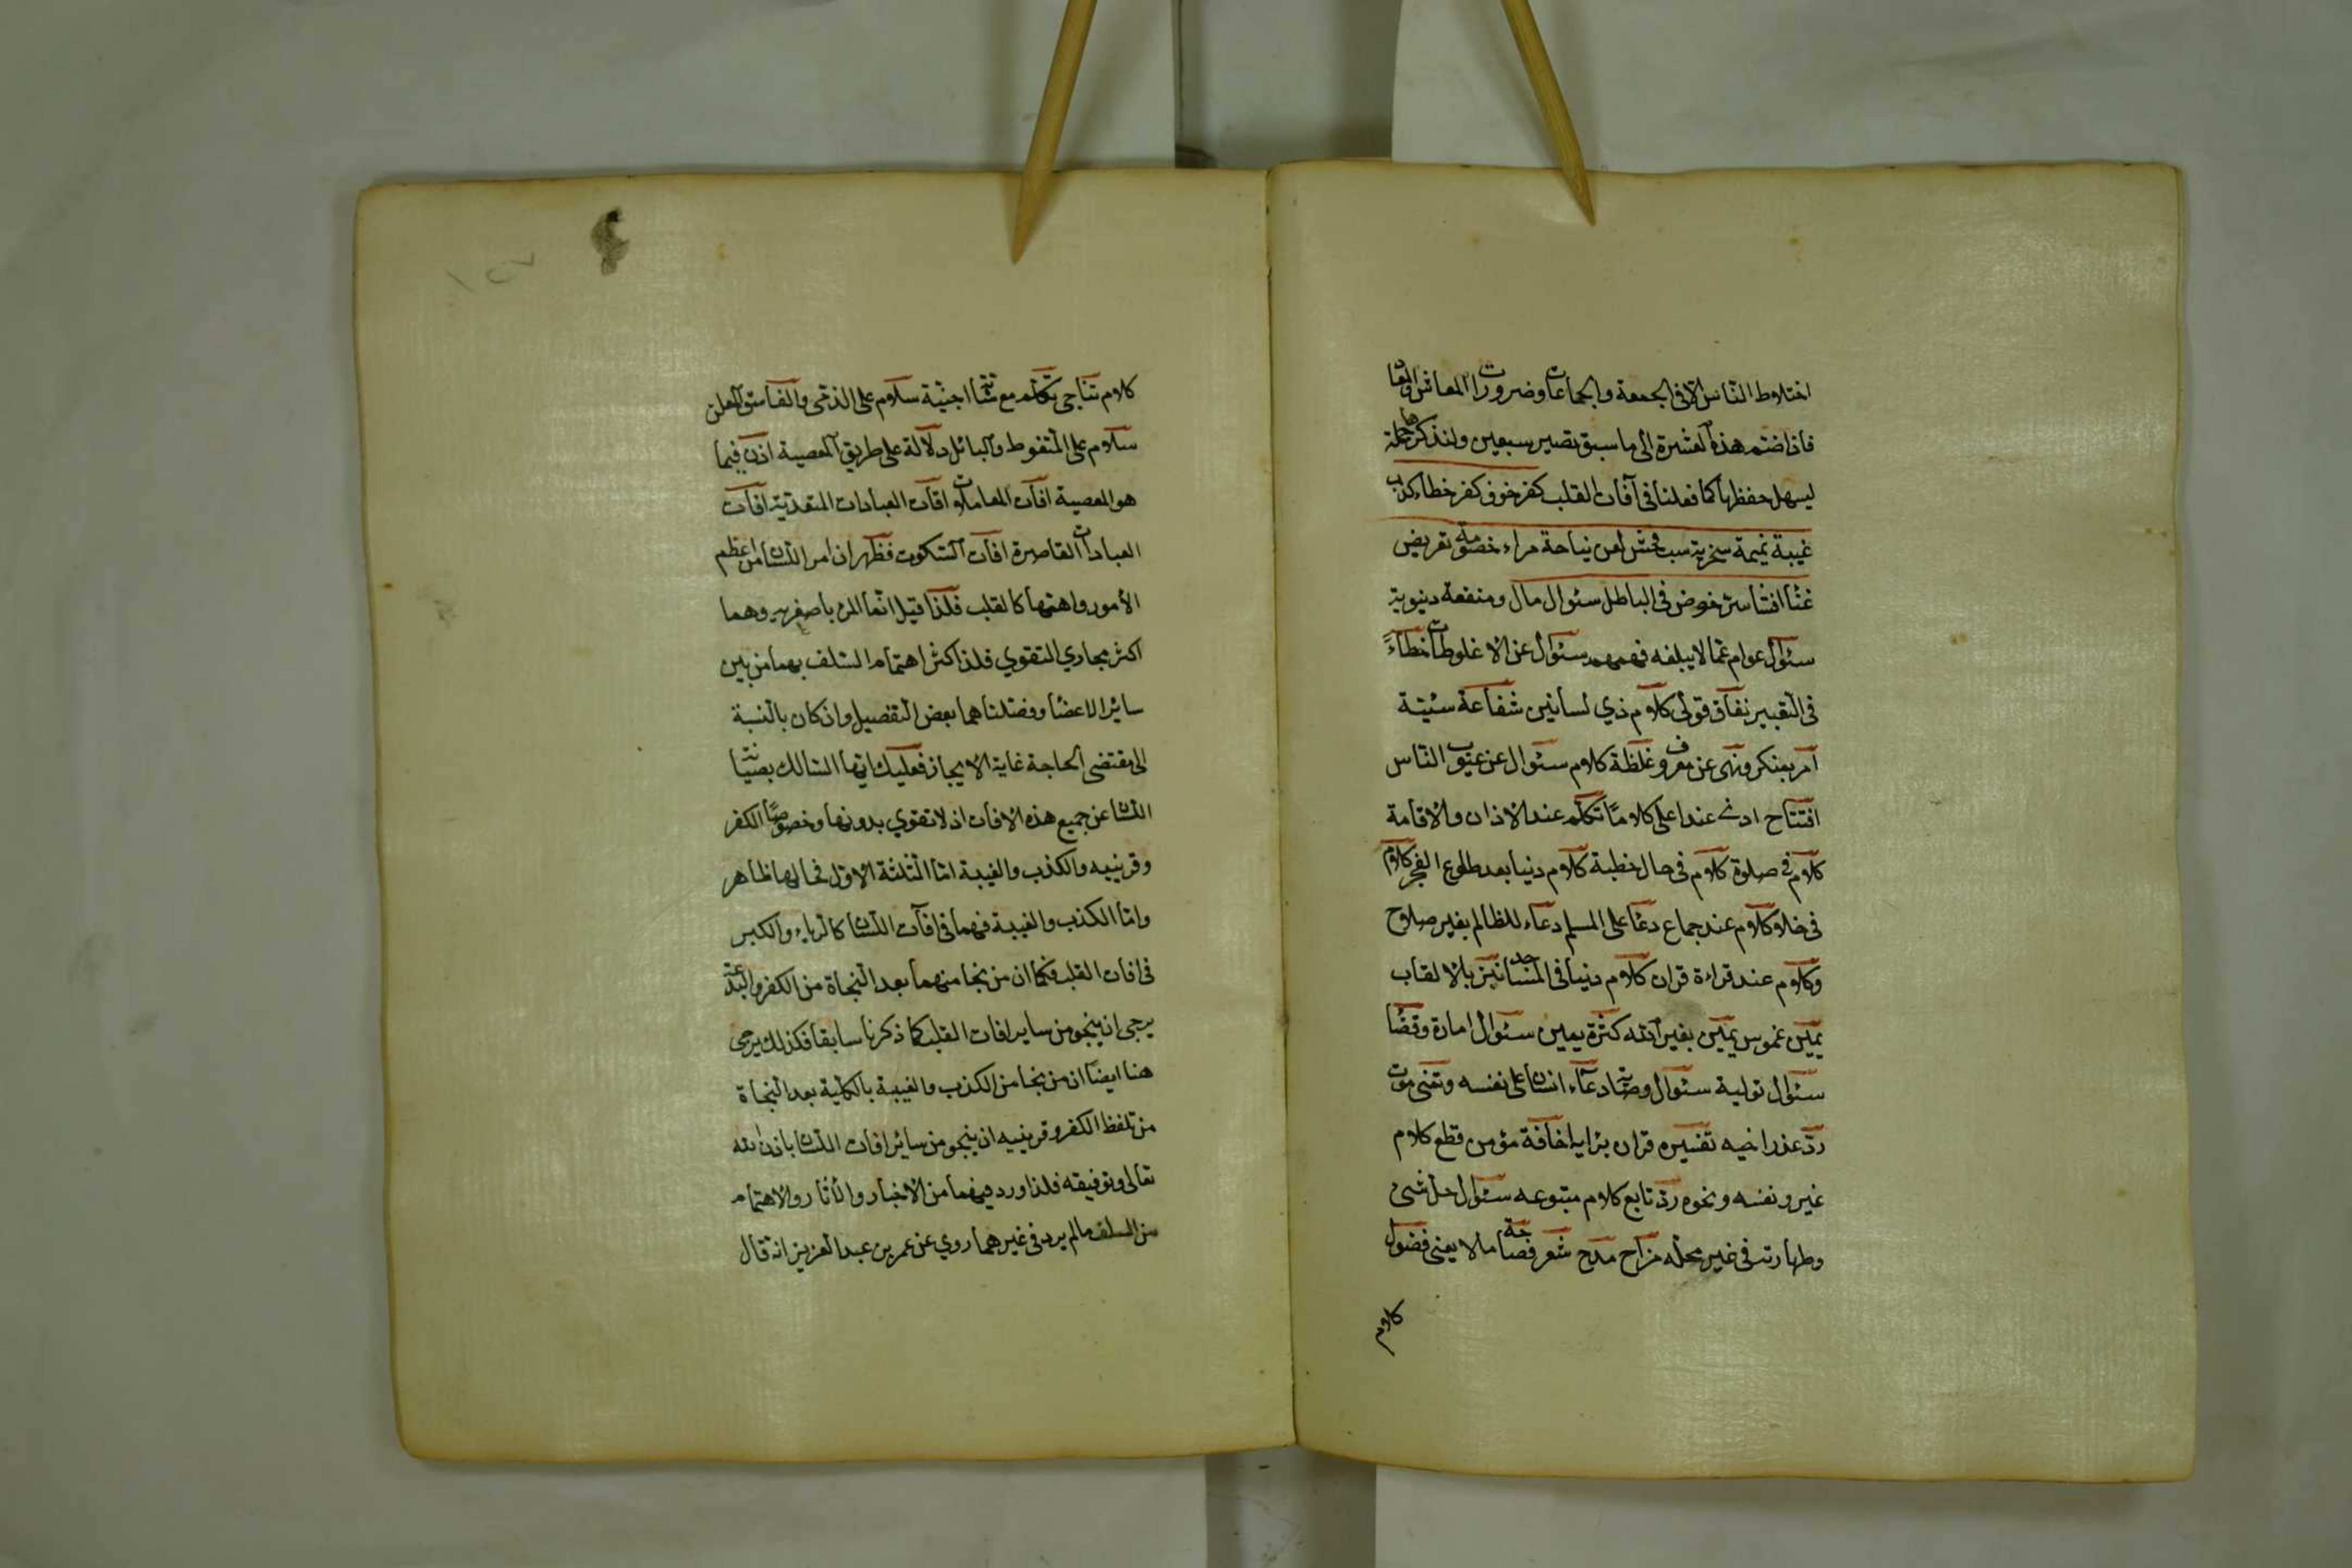 اختلاوط النّاس الا فى الجمعة والجماعات وضرورات المعاش والمعاد
فاذا ضتم هذه العشرة الى ما سبق تصير سبعين ولنذكرها جملة
ليسهل حفظها كما فعلنا فى آفات القلب كفر خوف كفر خطاء كذب
غيبة نميمة سخرية سب فحش لعن نياحة مراء خصومة تعريض
غنا افشا سر خوض فى الباطل سئوال مال ومنفعة دنيوية
سئوال عوام عمّا لا يبلغه فهمهم سئوال عن الاغلوطات خطاءً
فى التعبير نفاق قولى كلام ذي لسانين شفاعة سيئة
امر بمنكر ونهى عن معروف غلظة كلام سئوال عن عيوب الناس
افتتاح ادنى عند اعلى كلاما تكلم عند الاذان والاقامة
كلام فى صلوة كلام فى حال خطبة كلام دنيا بعد طلوع الفجر كلام
فى خلا وكلام عند جماع دعا على المسلم دعاء للظالم بغير صلاح
وكلام عند قراءة قران كلام دنيا فى المساجد تنابز بالالقاب
يمين غموس يمين بغير الله كثرة يمين سئوال امارة وقضا
سئوال تولية سئوال وصاية دعاء انسان على نفسه وتمنى موت
ردّ عذر اخيه تفسيره قران برايه اخافة مؤمن قطع كلام
غيره ونفسه ونحوه ردّ تابع كلام متبوعه سئوال حل شئ
وطهارته فى غير محله مزاح مدح شعر فصاحة ما لا يعنى فضول
كلام
١٢٧
كلام تناجى تكلم مع شابة اجنبية سلام على الذمى والفاسق المعلن
سلام على المتغوط والبائل دلالة على طريق المعصية اذن فيما
هو المعصية افات المعاملات افات العبادات المتعدية افات
العبادات القاصرة افات السكوت فظهر ان امر اللسان من اعظم
الأمور واهمها كالقلب فلذا قيل انّما المرء باصغريه وهما
اكثر مجاري التقوي فلذا اكثر اهتمام السلف بهما من بين
سائر الاعضا وفصلناهما بعض التفصيل وان كان بالنسبة
الى مقتضى الحاجة غاية الايجاز فعليك ايها السالك بصيانة
اللسان عن جميع هذه الافات اذ لا تقوي بدونها وخصوصًا الكفر
وقرينيه والكذب والغيبة امّا الثلثة الاول فحالها ظاهر
وامّا الكذب والغيبة فهما فى افات اللسان كالرياء والكبر
فى افات القلب فكما ان من نجا منهما بعد النجاة من الكفر والبدعة
يرجى ان ينجو من ساير افات القلب كما ذكرنا سابقا فكذلك يرجى
هنا ايضا ان من نجا من الكذب والغيبة بالكلّية بعد النجاة
من تلفظ الكفر وقرينيه ان ينجو من سائر افات اللسان باذن الله
تعالى وتوفيقه فلذا ورد فيهما من الاخبار والأثار والاهتمام
من السلف مالم يرد فى غيرهما روي عن عمر بن عبد العزيز انه قال